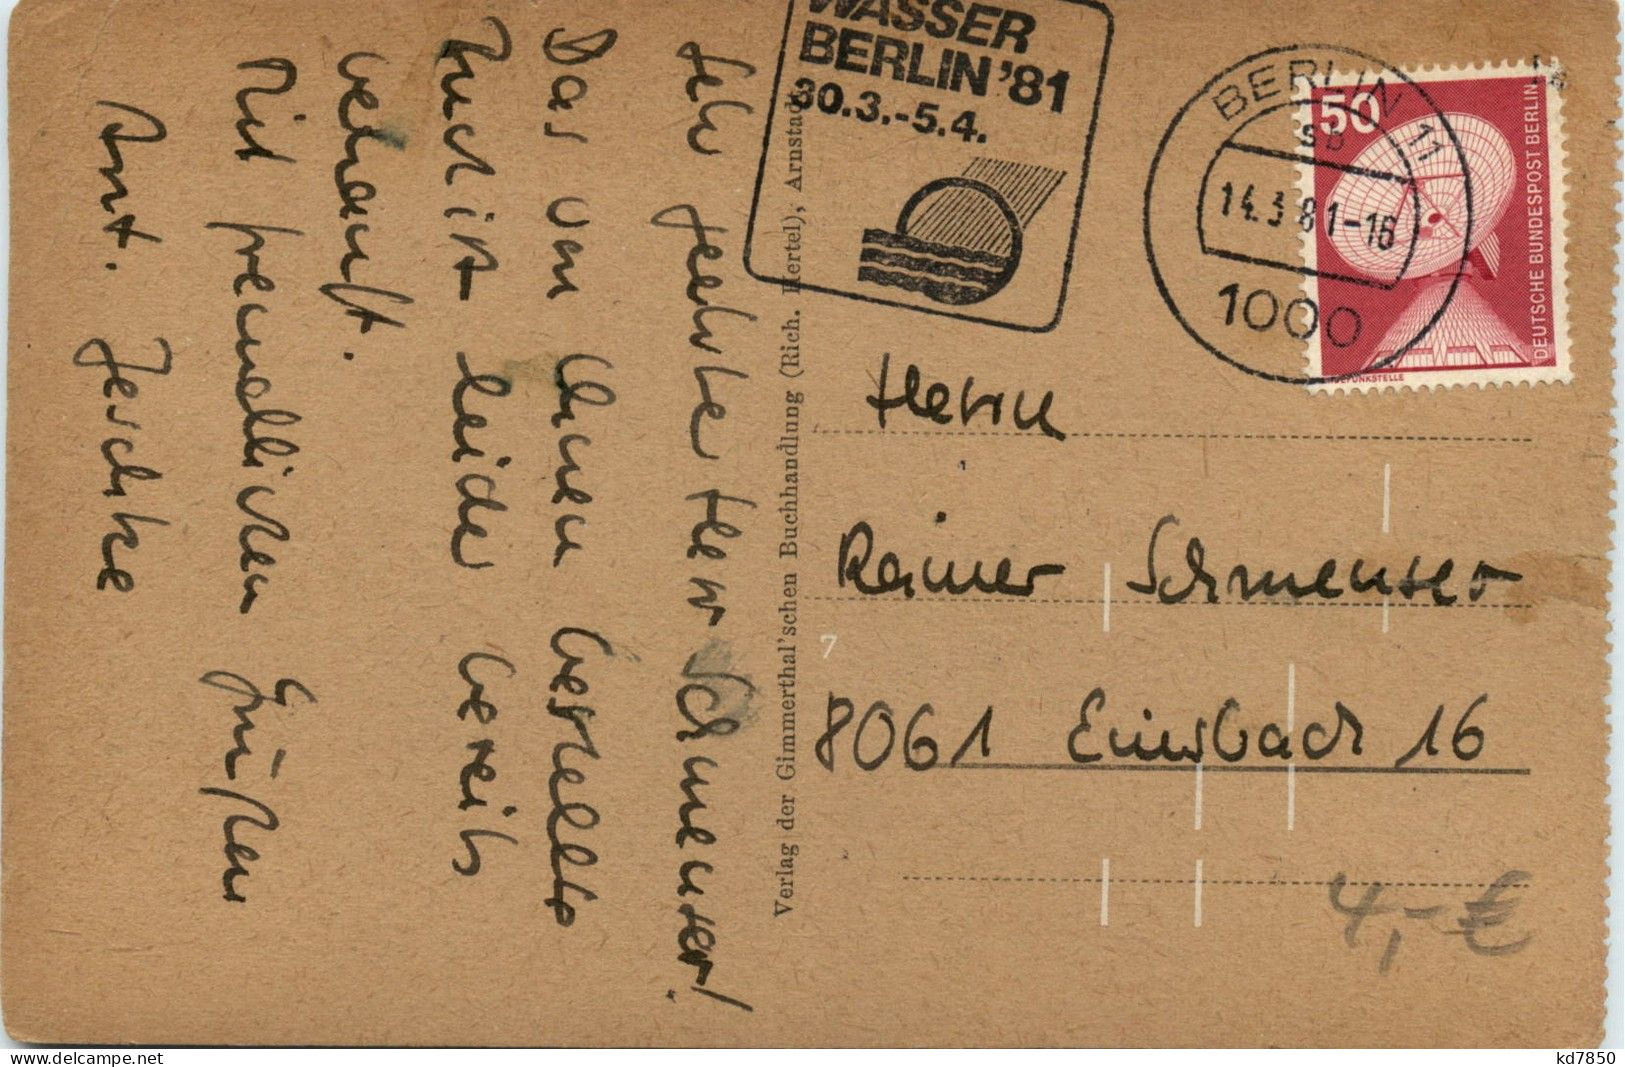 WASSER
BERLIN '81
30.3.-5.4.
BERLIN 11
sb
14.3.81-16
1000
50
DEUTSCHE BUNDESPOST BERLIN
Sehr geehrter Herr Schmenser!
Das von Ihnen bestellte
Buch ist leider bereits
verkauft.
Mit freundlichen Grüßen
Jeschke
Verlag der Gimmerthal'schen Buchhandlung (Rich. Hertel), Arnstadt
Herrn
Rainer Schmenser
8061 Einsbach 16
7
4,- €
kd7850